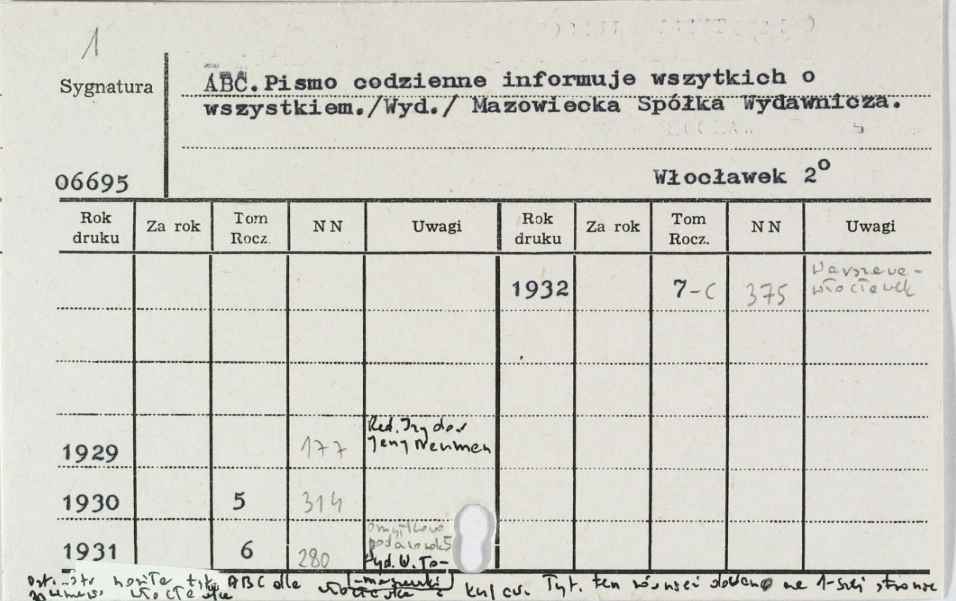 1
Sygnatura
ABC.Pismo codzienne informuje wszytkich o
wszystkiem./Wyd./ Mazowiecka Spółka Wydawnicza.
06695
Włocławek 2o
Rok druku Za rok Tom Rocz. NN Uwagi Rok druku Za rok Tom Rocz. NN Uwagi
1932 7-C 375 Warszawa-
Włocławek
1929 177 Red. Izydor
Jerzy Neuman
1930 5 314
1931 6 280 omyłkowo
Wyd. W. To-
-maszewski
ABC dla Tyt. ten również na 1-szej stronie